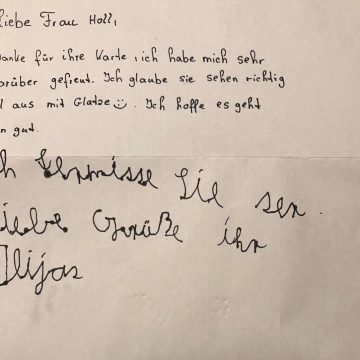 Liebe Frau Holl,
Danke für ihre Karte, ich habe mich sehr
darüber gefreut. Ich glaube sie sehen richtig
aus mit Glatze☺. Ich hoffe es geht
gut.
Vermisse Sie ser.
Liebe Grüße ihr
Ilijas